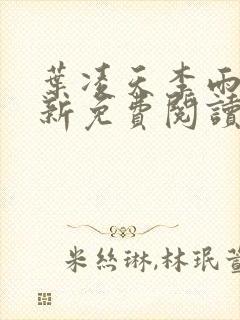 葉凌天李雨
新免費閱讀
米絲琳,林珉萱